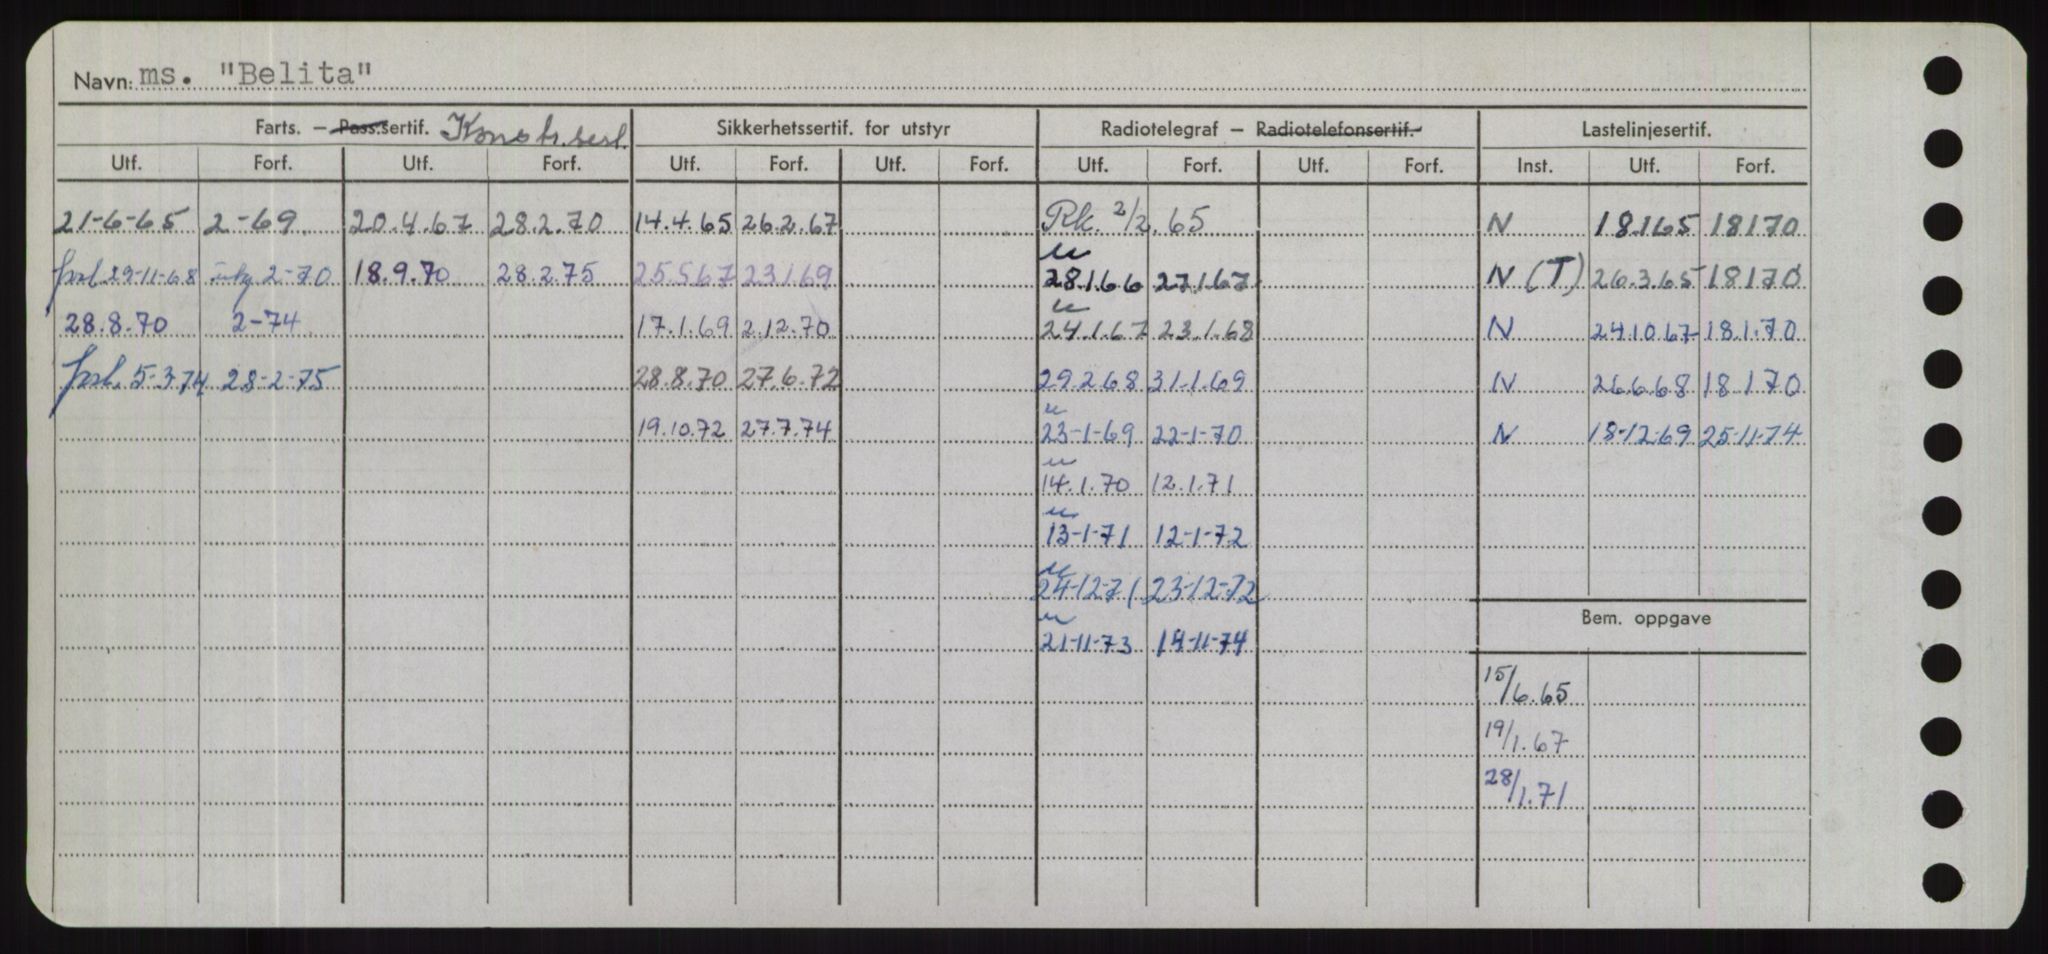 Navn: ms. "Belita"
Farts. – Pass.sertif. Konstr.sert. Sikkerhetssertif. for utstyr Radiotelegraf – Radiotelefonsertif. Lastelinjesertif.
Utf. Forf. Utf. Forf. Utf. Forf. Utf. Forf. Utf. Forf. Utf. Forf. Inst. Utf. Forf.
21-6-65 2-69 20.4.67 28.2.70 14.4.65 26.2.67 Rk. 2/2.65 N 18.1.65 18 1 70
forl 29-11-68 2-70 18.9.70 28.2.75 25.5.67 23.1.69 28.1.66 27.1.67 N (T) 26.3.65 18 1 70
28.8.70 2-74 17.1.69 2.12.70 24.1.67 23.1.68 N 24.10.67 18.1.70
forl. 5-3-74 28-2-75 28.8.70 27.6.72 29.2.68 31.1.69 N 26.6.68 18.1.70
19.10.72 27.7.74 23-1-69 22-1-70 N 18-12-69 25-11-74
14.1.70 12.1.71
13-1-71 12-1-72
24-12-71 23-12-72
Bem. oppgave
21-11-73 14-11-74
15/6.65
19/1.67
28/1.71